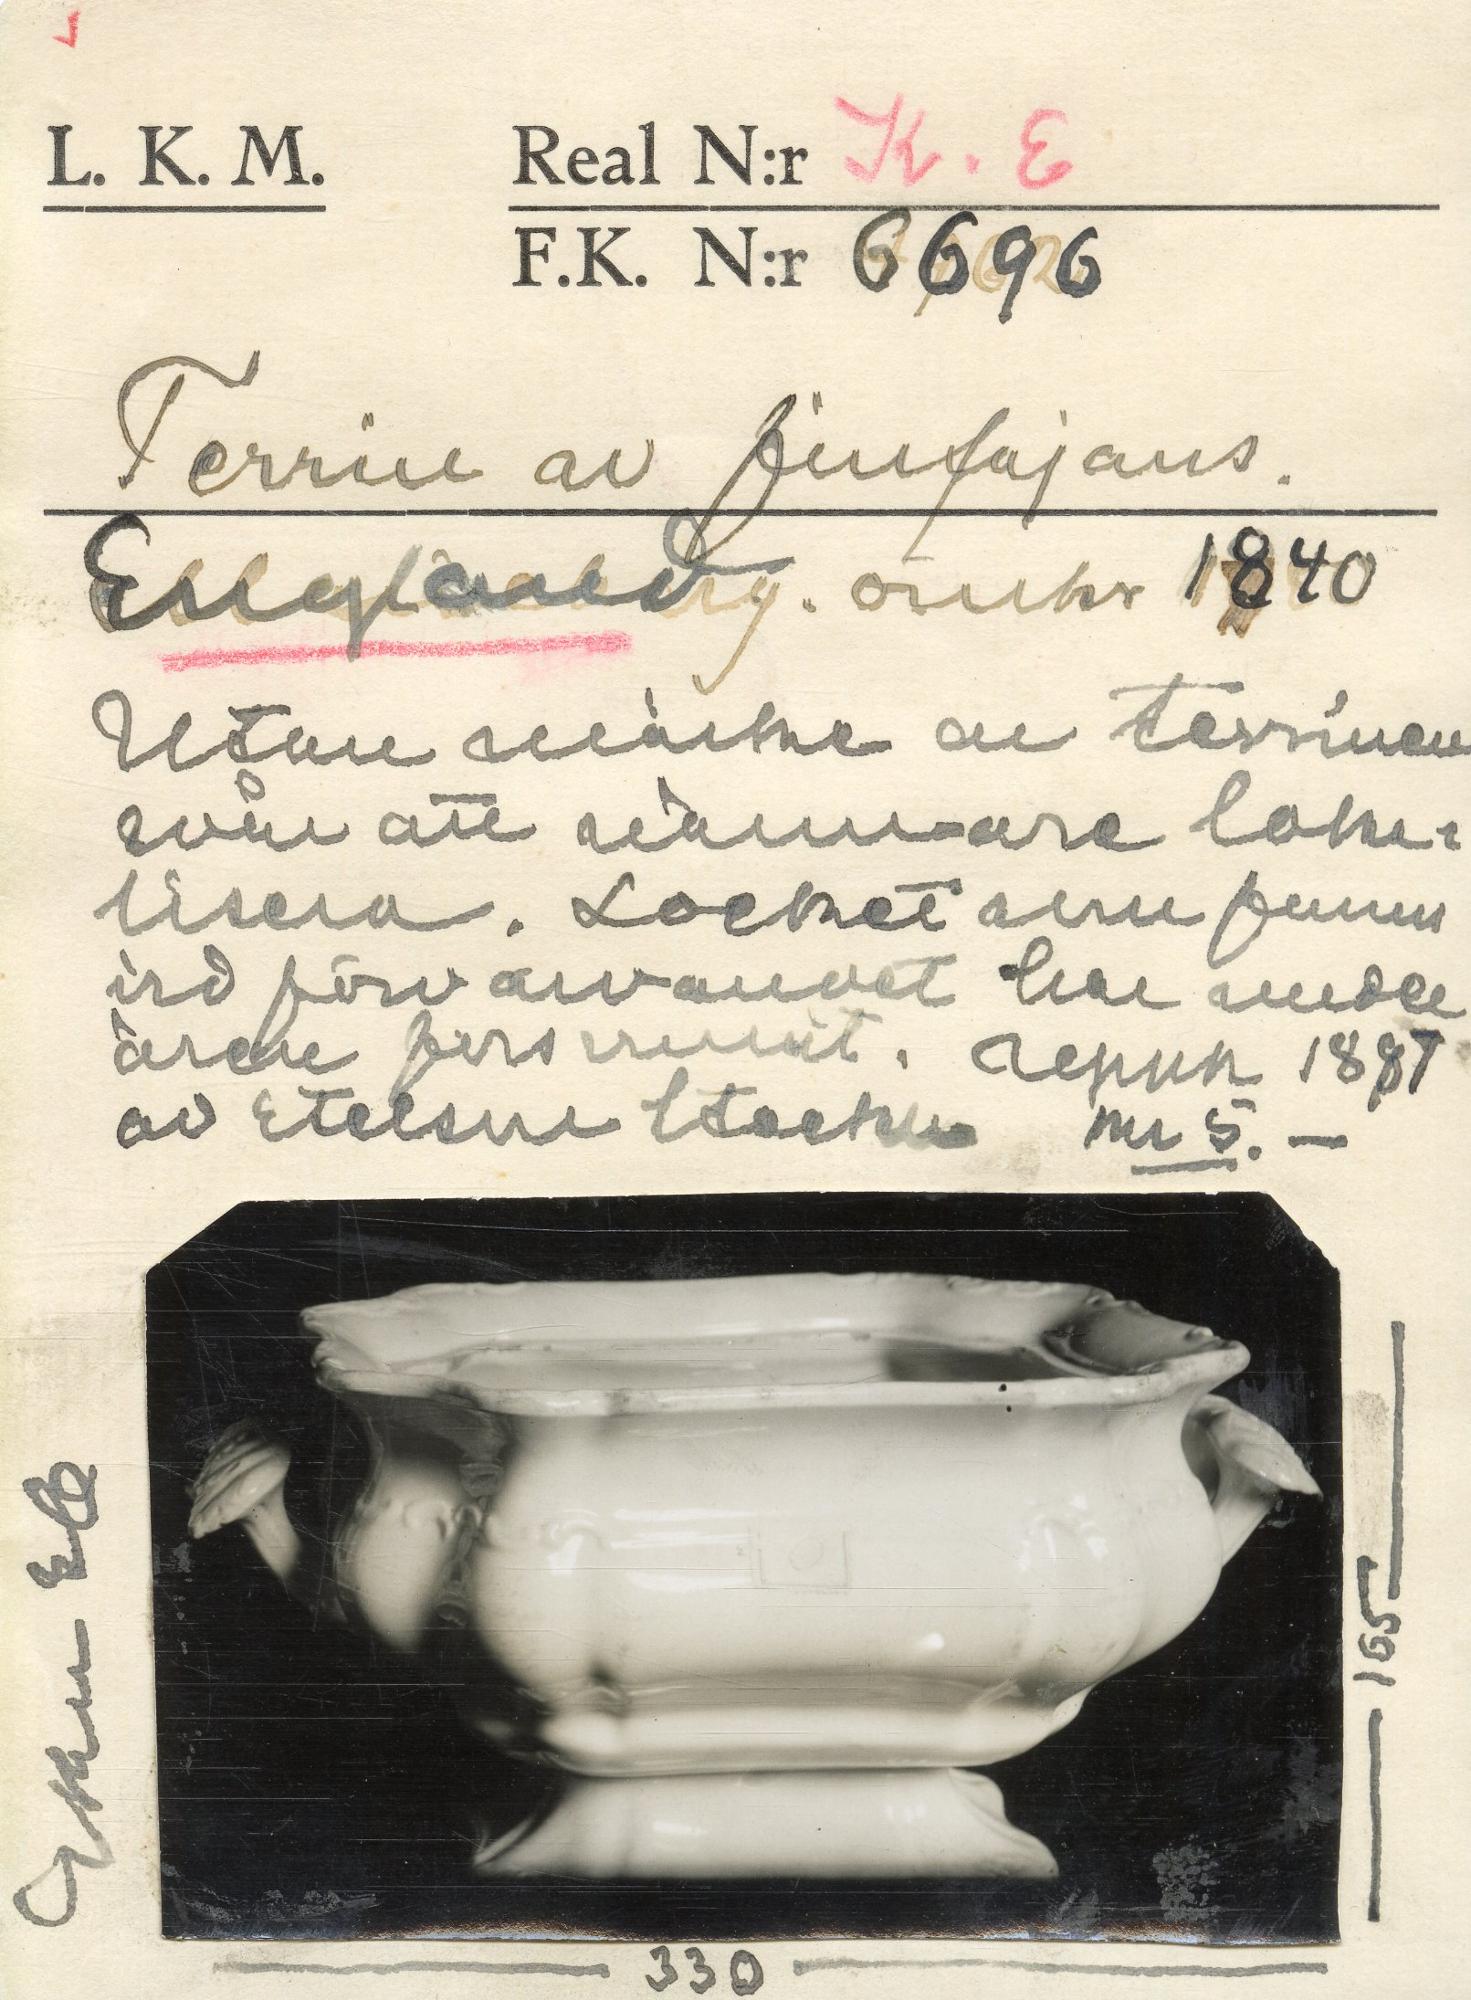 L. K. M.
Real N:r K. E
F.K. N:r 6696
Terrin av finfajans.
England. omkr 1840
Utan märke är terrinen
svår att närmare loka-
lisera. Locket som fanns
vid förvärvandet har under
åren försvunnit. Uppk 1887
av Stockh Kr 5.—
165
330